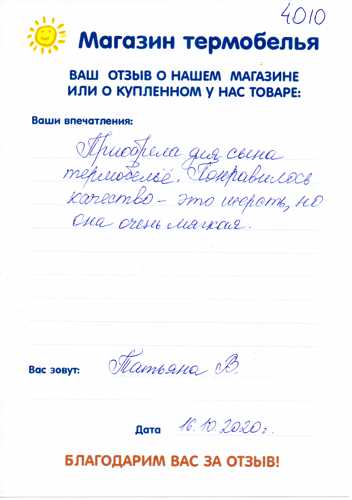 4010
Магазин термобелья
ВАШ ОТЗЫВ О НАШЕМ МАГАЗИНЕ
ИЛИ О КУПЛЕННОМ У НАС ТОВАРЕ:
Ваши впечатления:
Приобрела для сына
термобельё. Понравилось
качество - это шерсть, но
она очень мягкая.
Вас зовут: Татьяна В.
Дата 16.10.2020г.
БЛАГОДАРИМ ВАС ЗА ОТЗЫВ!